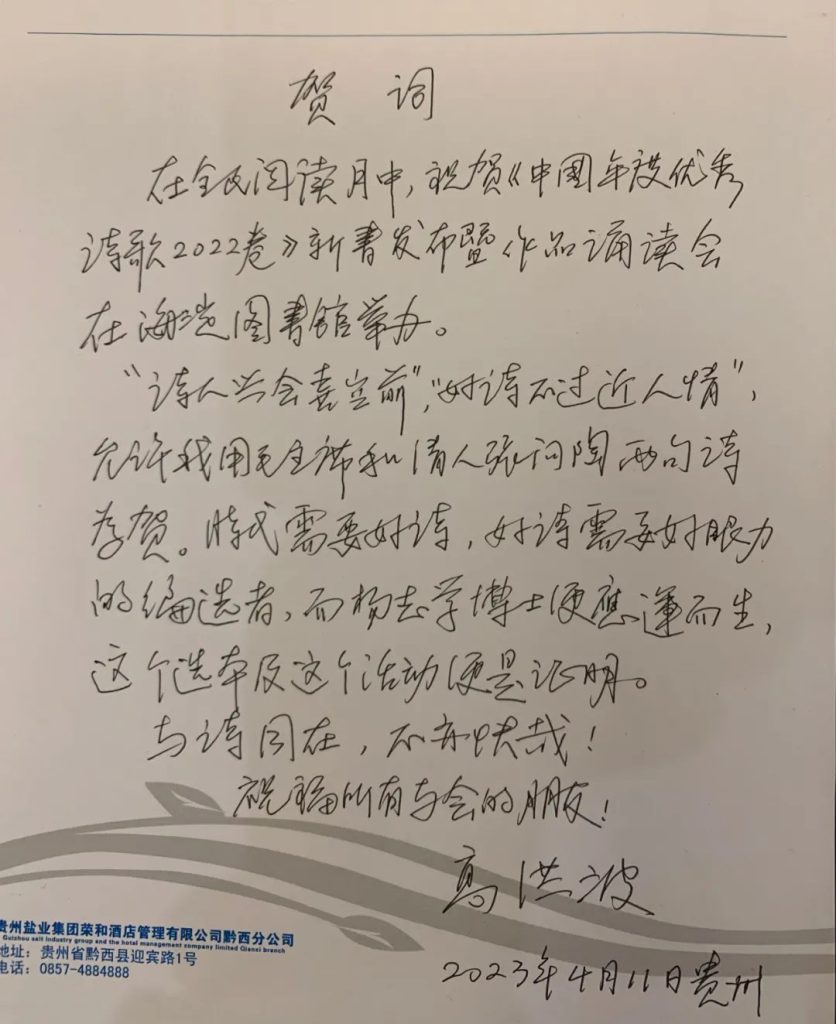 贺 词
在全民阅读月中,祝贺《中国年度优秀
诗歌2022卷》新書发布暨作品诵读会
在海淀图書館举办。
“诗人兴会喜空前”,“好诗不过近人情”,
允许我用毛主席和清人张问陶两句诗
为贺。时代需要好诗,好诗需要好眼力
的编选者,而杨志学博士便應運而生,
这个选本及这个活动便是证明。
与诗同在,不亦快哉!
祝福所有与会的朋友!
高洪波
2023年4月11日贵州
贵州盐业集团荣和酒店管理有限公司黔西分公司
Guizhou salt industry group and the hotel management company limited Qianxi branch
地址:贵州省黔西县迎宾路1号
电话:0857-4884888